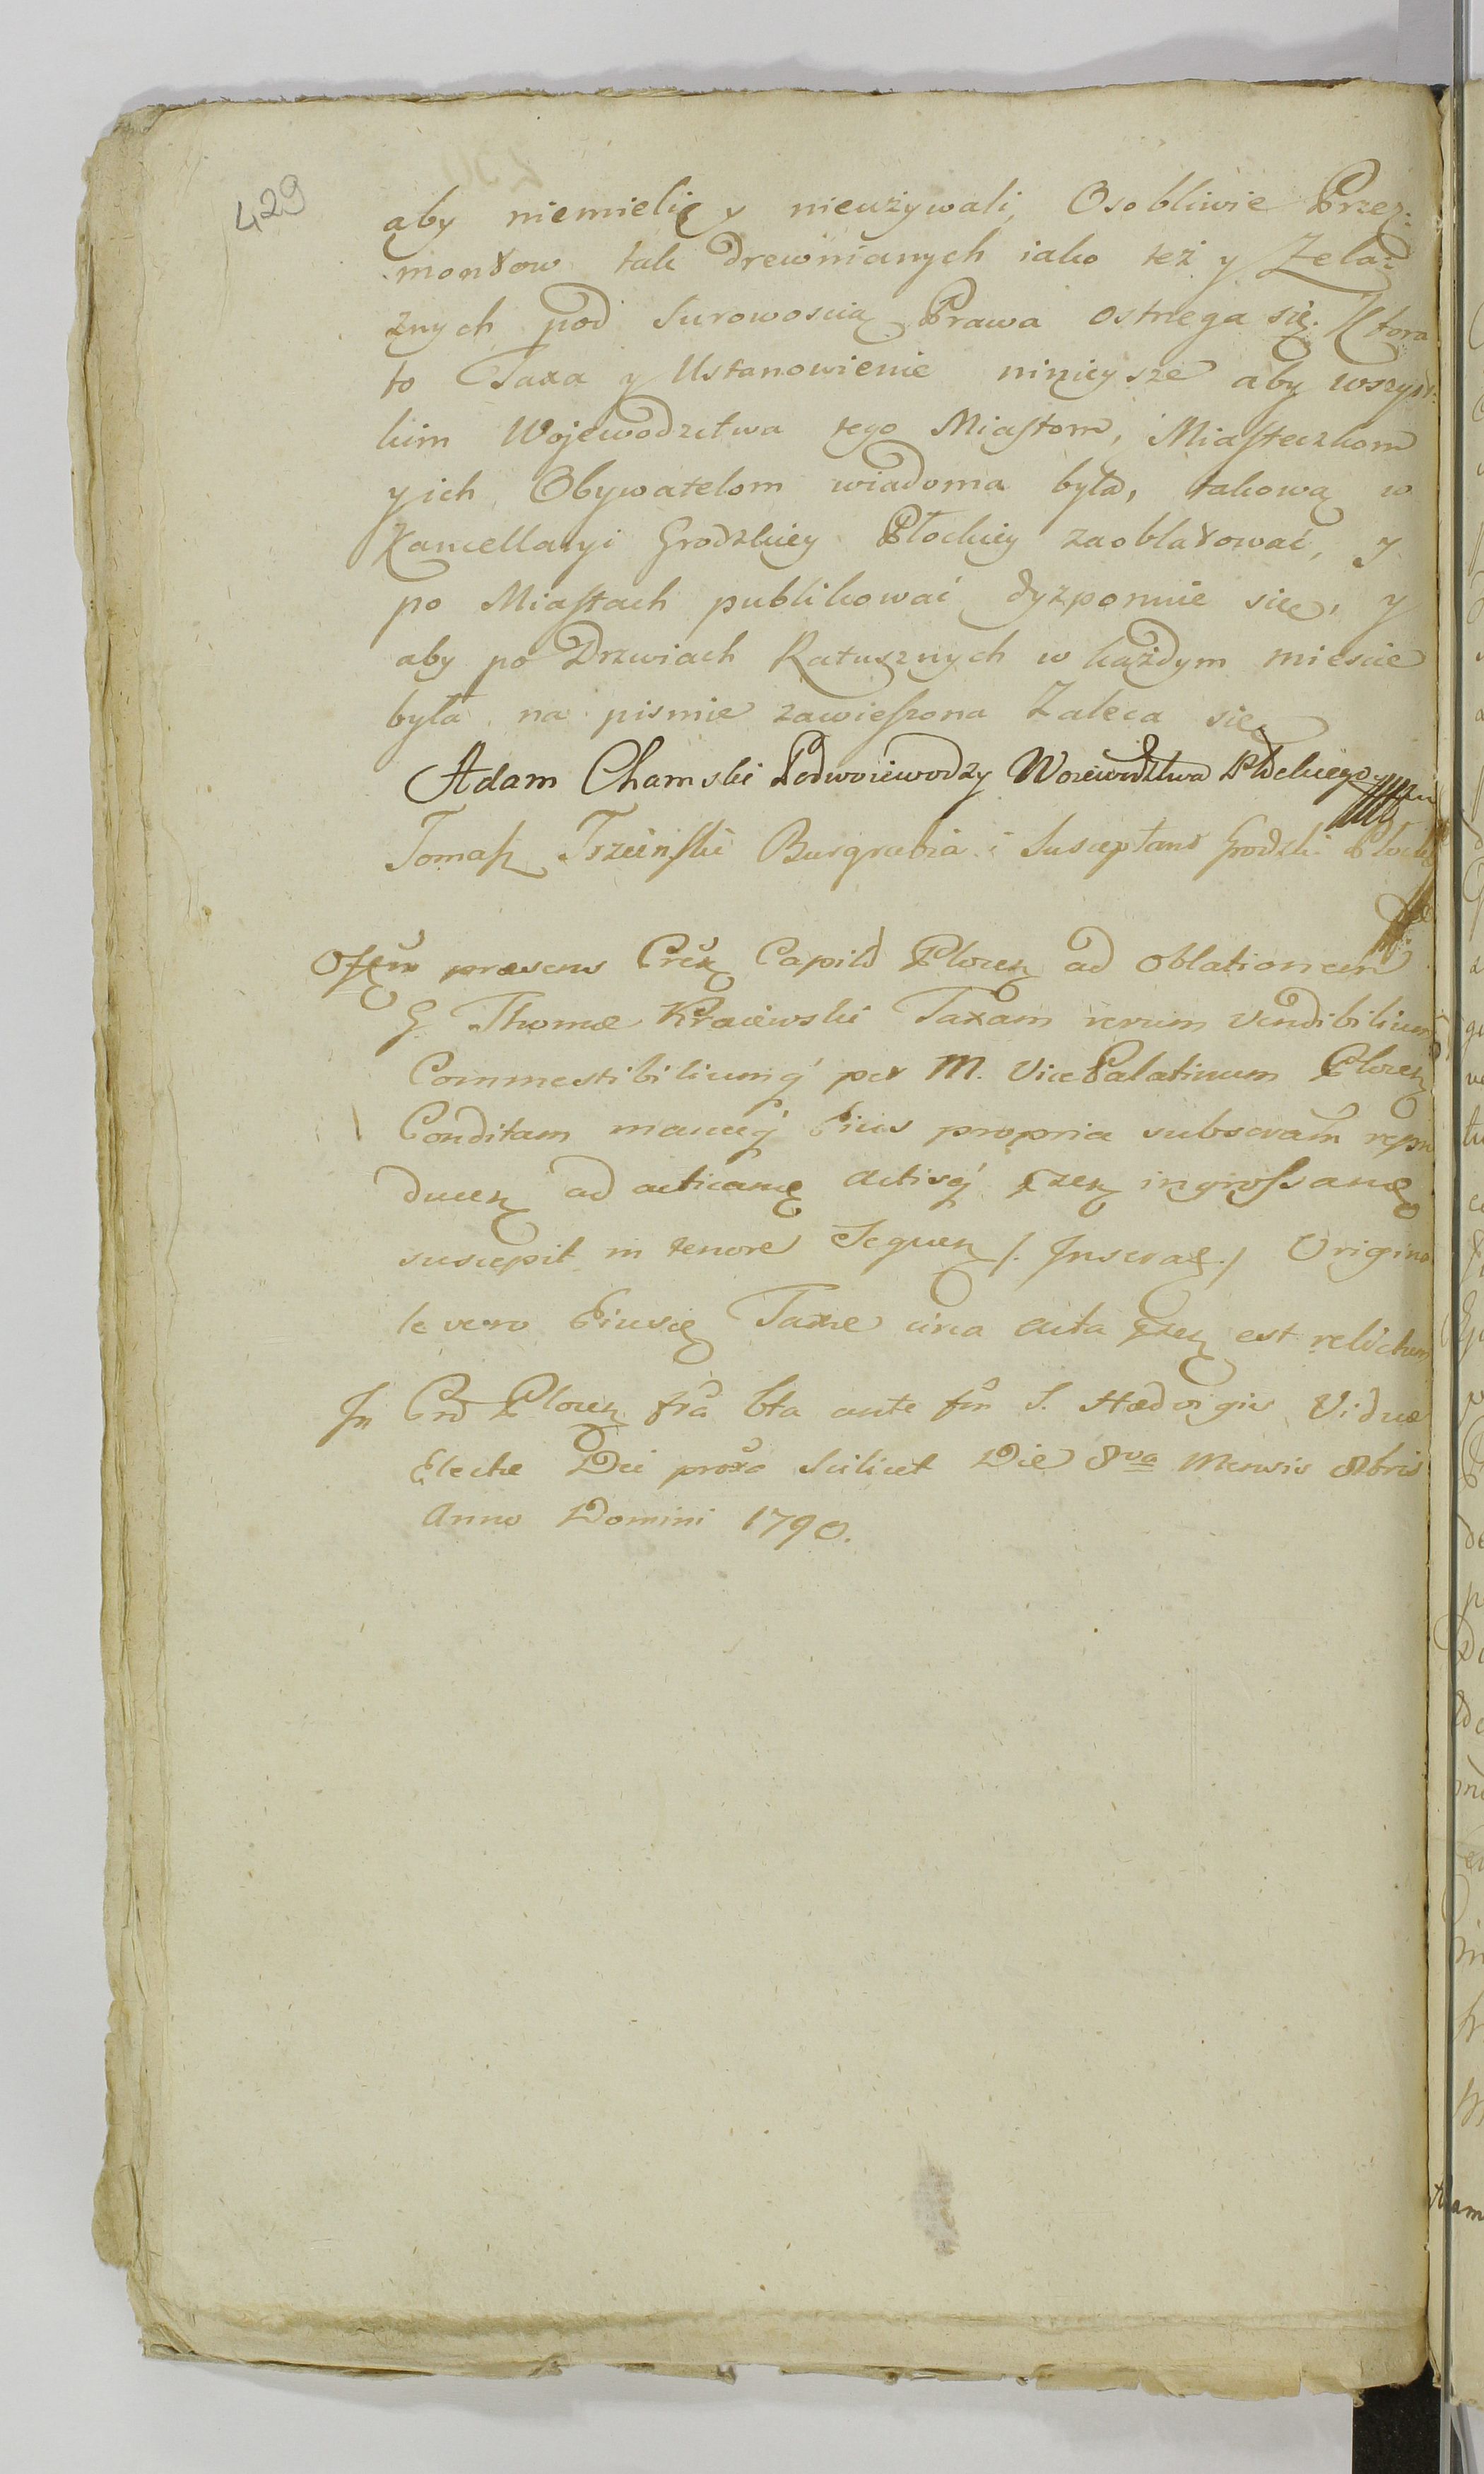 429
aby niemieli y nieużywali, Osobliwie Przez:
montow tak drewnianych iako też y Zela:
znych pod Surowoscią Prawa ostrzega się. Ktora
to Taxa y Ustanowienie ninieysze aby wszyst:
kim Wojewodztwa tego Miastom, Miasteczkom
y ich Obywatelom wiadoma była, takową w
Kancellaryi Grodzkiey Płockiey zaoblatować, y
po Miastach publikować dyzponuie się, y
aby po Drzwiach Ratusznych w każdym miescie
była na pismie zawieszona Zaleca się
Adam Chamski Podwoiewodzy Woiewodztwa Płockiego
Tomasz Trzcinski Burgrabia i Susceptant Grodzki Płocki
Offm præsens Cren Capitł Plocen ad oblationem
G. Thomæ Kraiewski Taxam rerum vendibilium
Commestibiliumq per M. Vice Palatinum Plocen
Conditam manuq Eius propria subscram repro
ducen ad acticand actisq ingrossand
suscepit in tenore Sequen /. Inserat ./ Origina
le vero Eiusd Taxæ circa acta est relictum
In Crō Plocen fria 6ta ante fm S. Hedvigis Viduæ
Electæ Dei proxo Scilicet Die 8va Mensis 8bris
Anno Domini 1790.